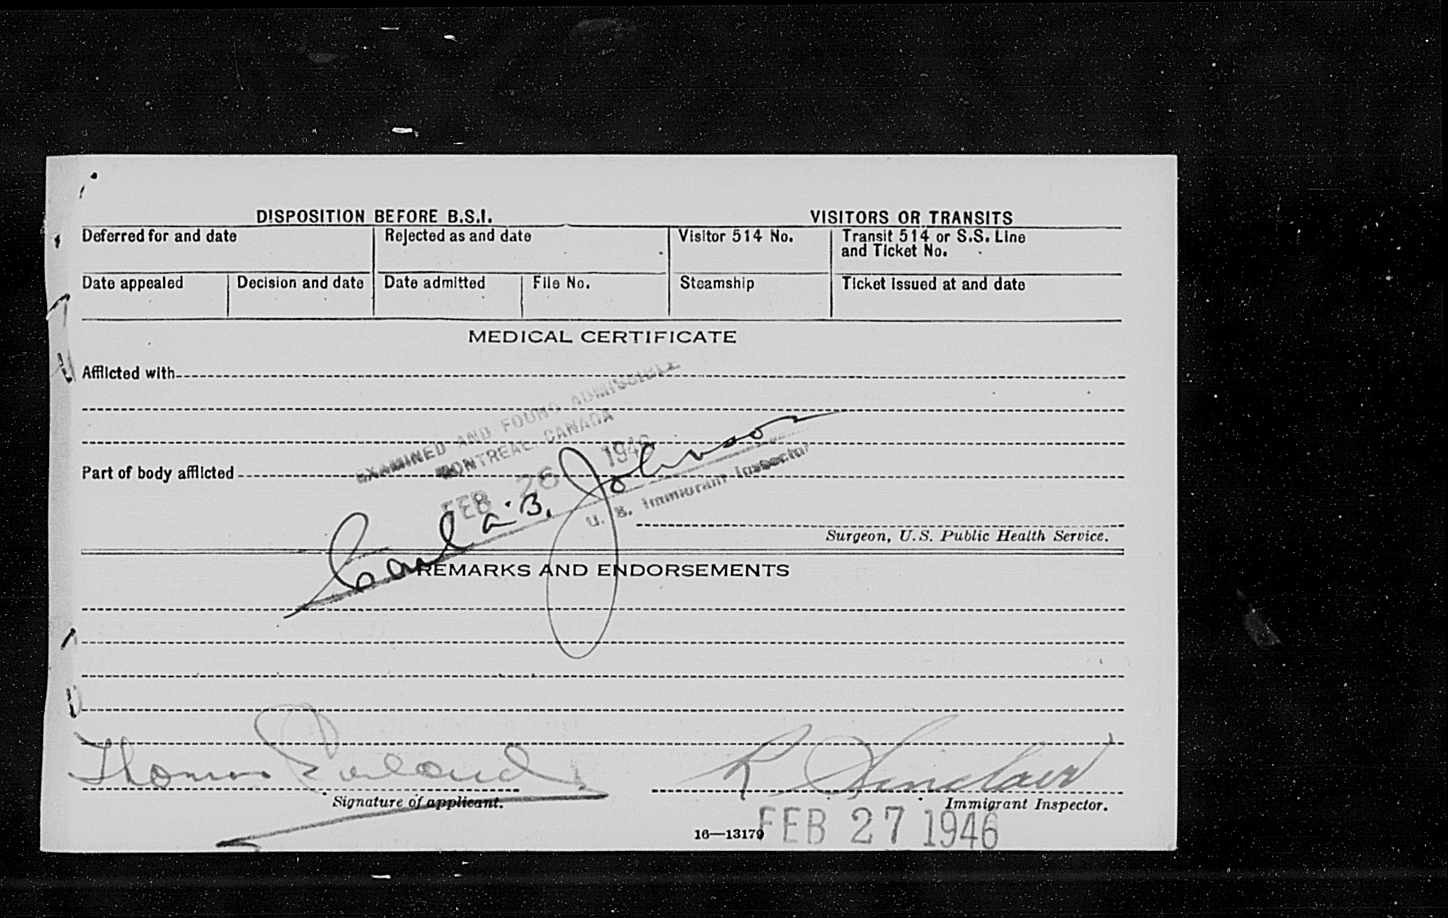 DISPOSITION BEFORE B.S.I.
VISITORS OR TRANSITS
Deferred for and date
Rejected as and date
Visitor 514 No.
Transit 514 or S.S. Line
and Ticket No.
Date appealed
Decision and date
Date admitted
File No.
Steamship
Ticket issued at and date
MEDICAL CERTIFICATE
Afflicted with
EXAMINED AND FOUND ADMISSIBLE
MONTREAL CANADA
Part of body afflicted
FEB 26 1946
Carl A. B. Johnson
U. S. Immigrant Inspector
Surgeon, U.S. Public Health Service.
REMARKS AND ENDORSEMENTS
Thomas
R Sinclair
Signature of applicant.
Immigrant Inspector.
16—13179
FEB 27 1946